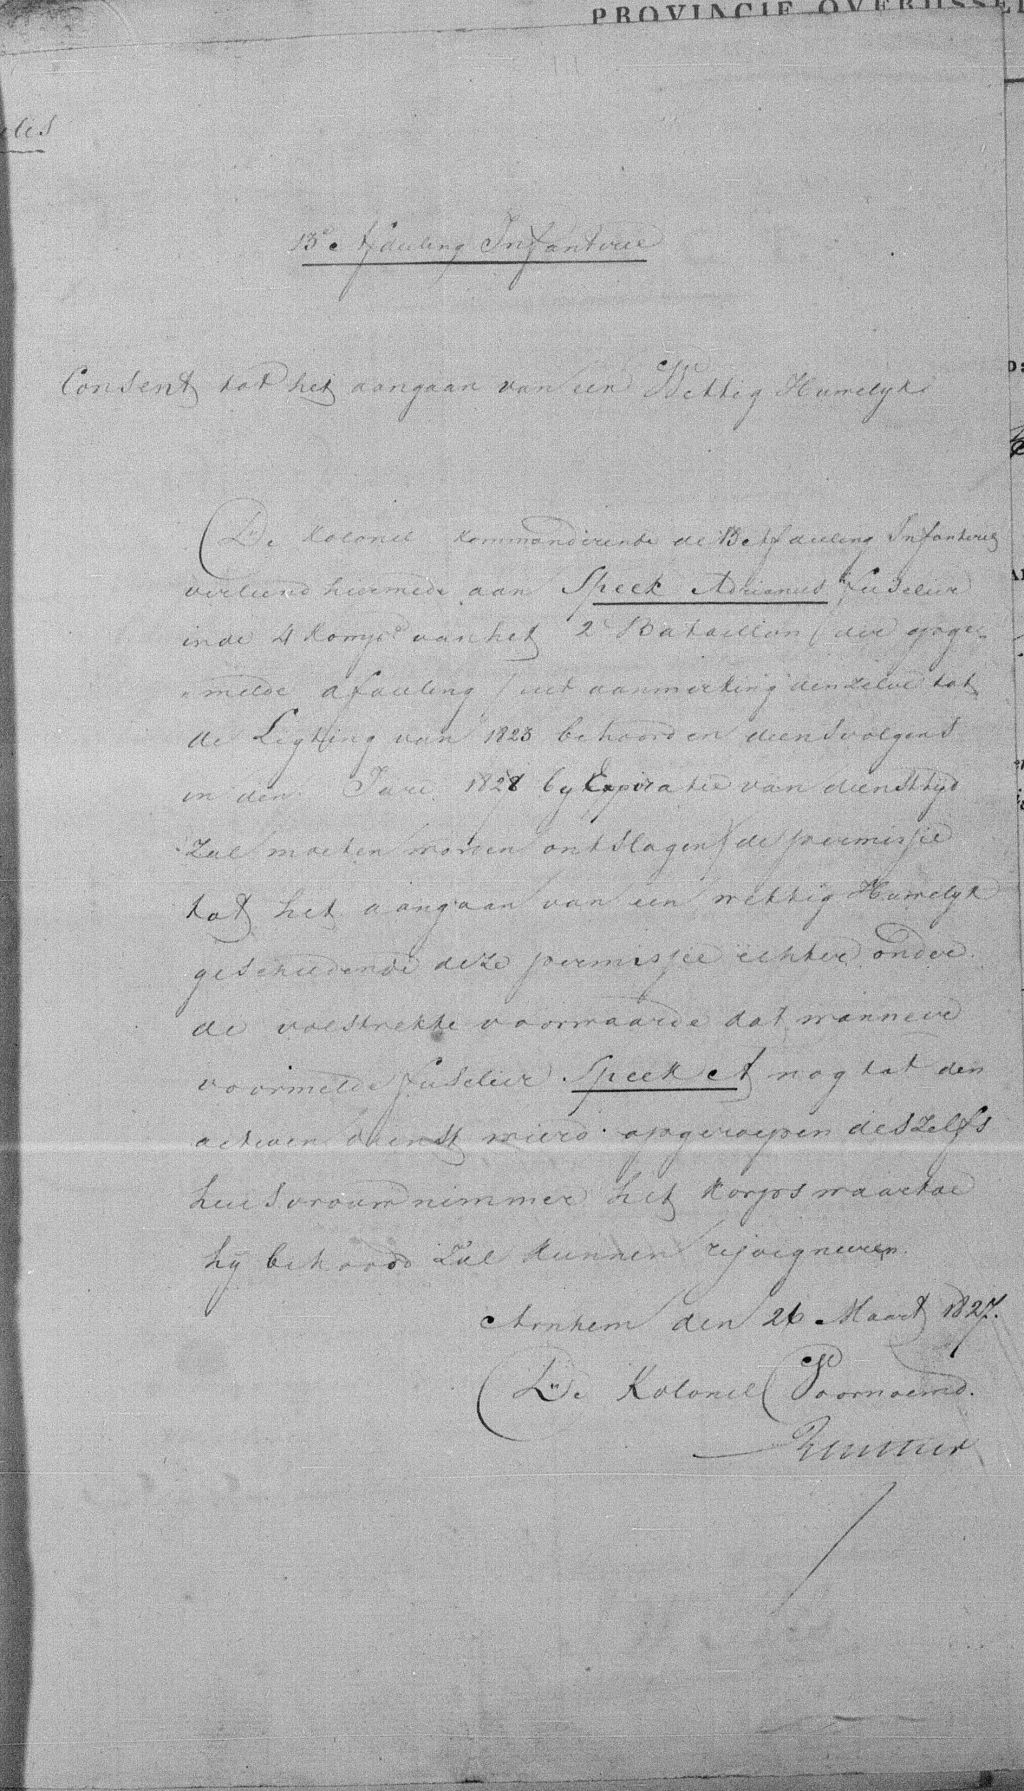 PROVINCIE OVERIJSSEL
13e Afdeeling Infanterie
Consent tot het aangaan van een Wettig Huwelijk
De Kolonel Kommanderende de 13 Afdeeling Infanterie
verleend hiermede aan Speek Adrianus fuselier
in de 4 Komp.e van het 2e Bataillon (der opge-
melde afdeeling / uit aanmerking denzelve tot
de Ligting van 1823 behoord en diensvolgens
in den Jare 1828 by Expiratie van diensttijd
zal moeten worden ontslagen) de permissie
tot het aangaan van een wettig Huwelijk
geschiedende deze permissie echter onder
de volstrekte voorwaarde dat wanneer
voormelde fuselier Speek A nog tot den
activen dienst wierd opgeroepen deszelfs
huisvrouw nimmer het Korps waartoe
hij behoord zal kunnen rejoigneren.
Arnhem den 26 Maart 1827.
De Kolonel Voornoemd.